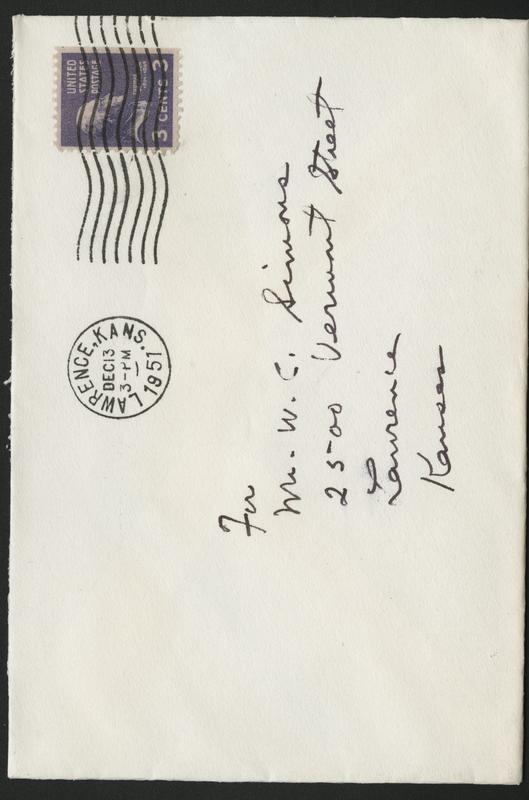 UNITED
STATES
POSTAGE
3 CENTS 3
LAWRENCE, KANS.
DEC 13
3-PM
1951
For
Mr. W. C. Simons
2500 Vermont Street
Lawrence
Kansas